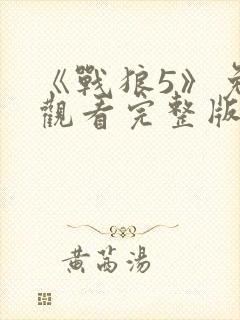 《戰狼5》免
觀看完整版
黃芩湯